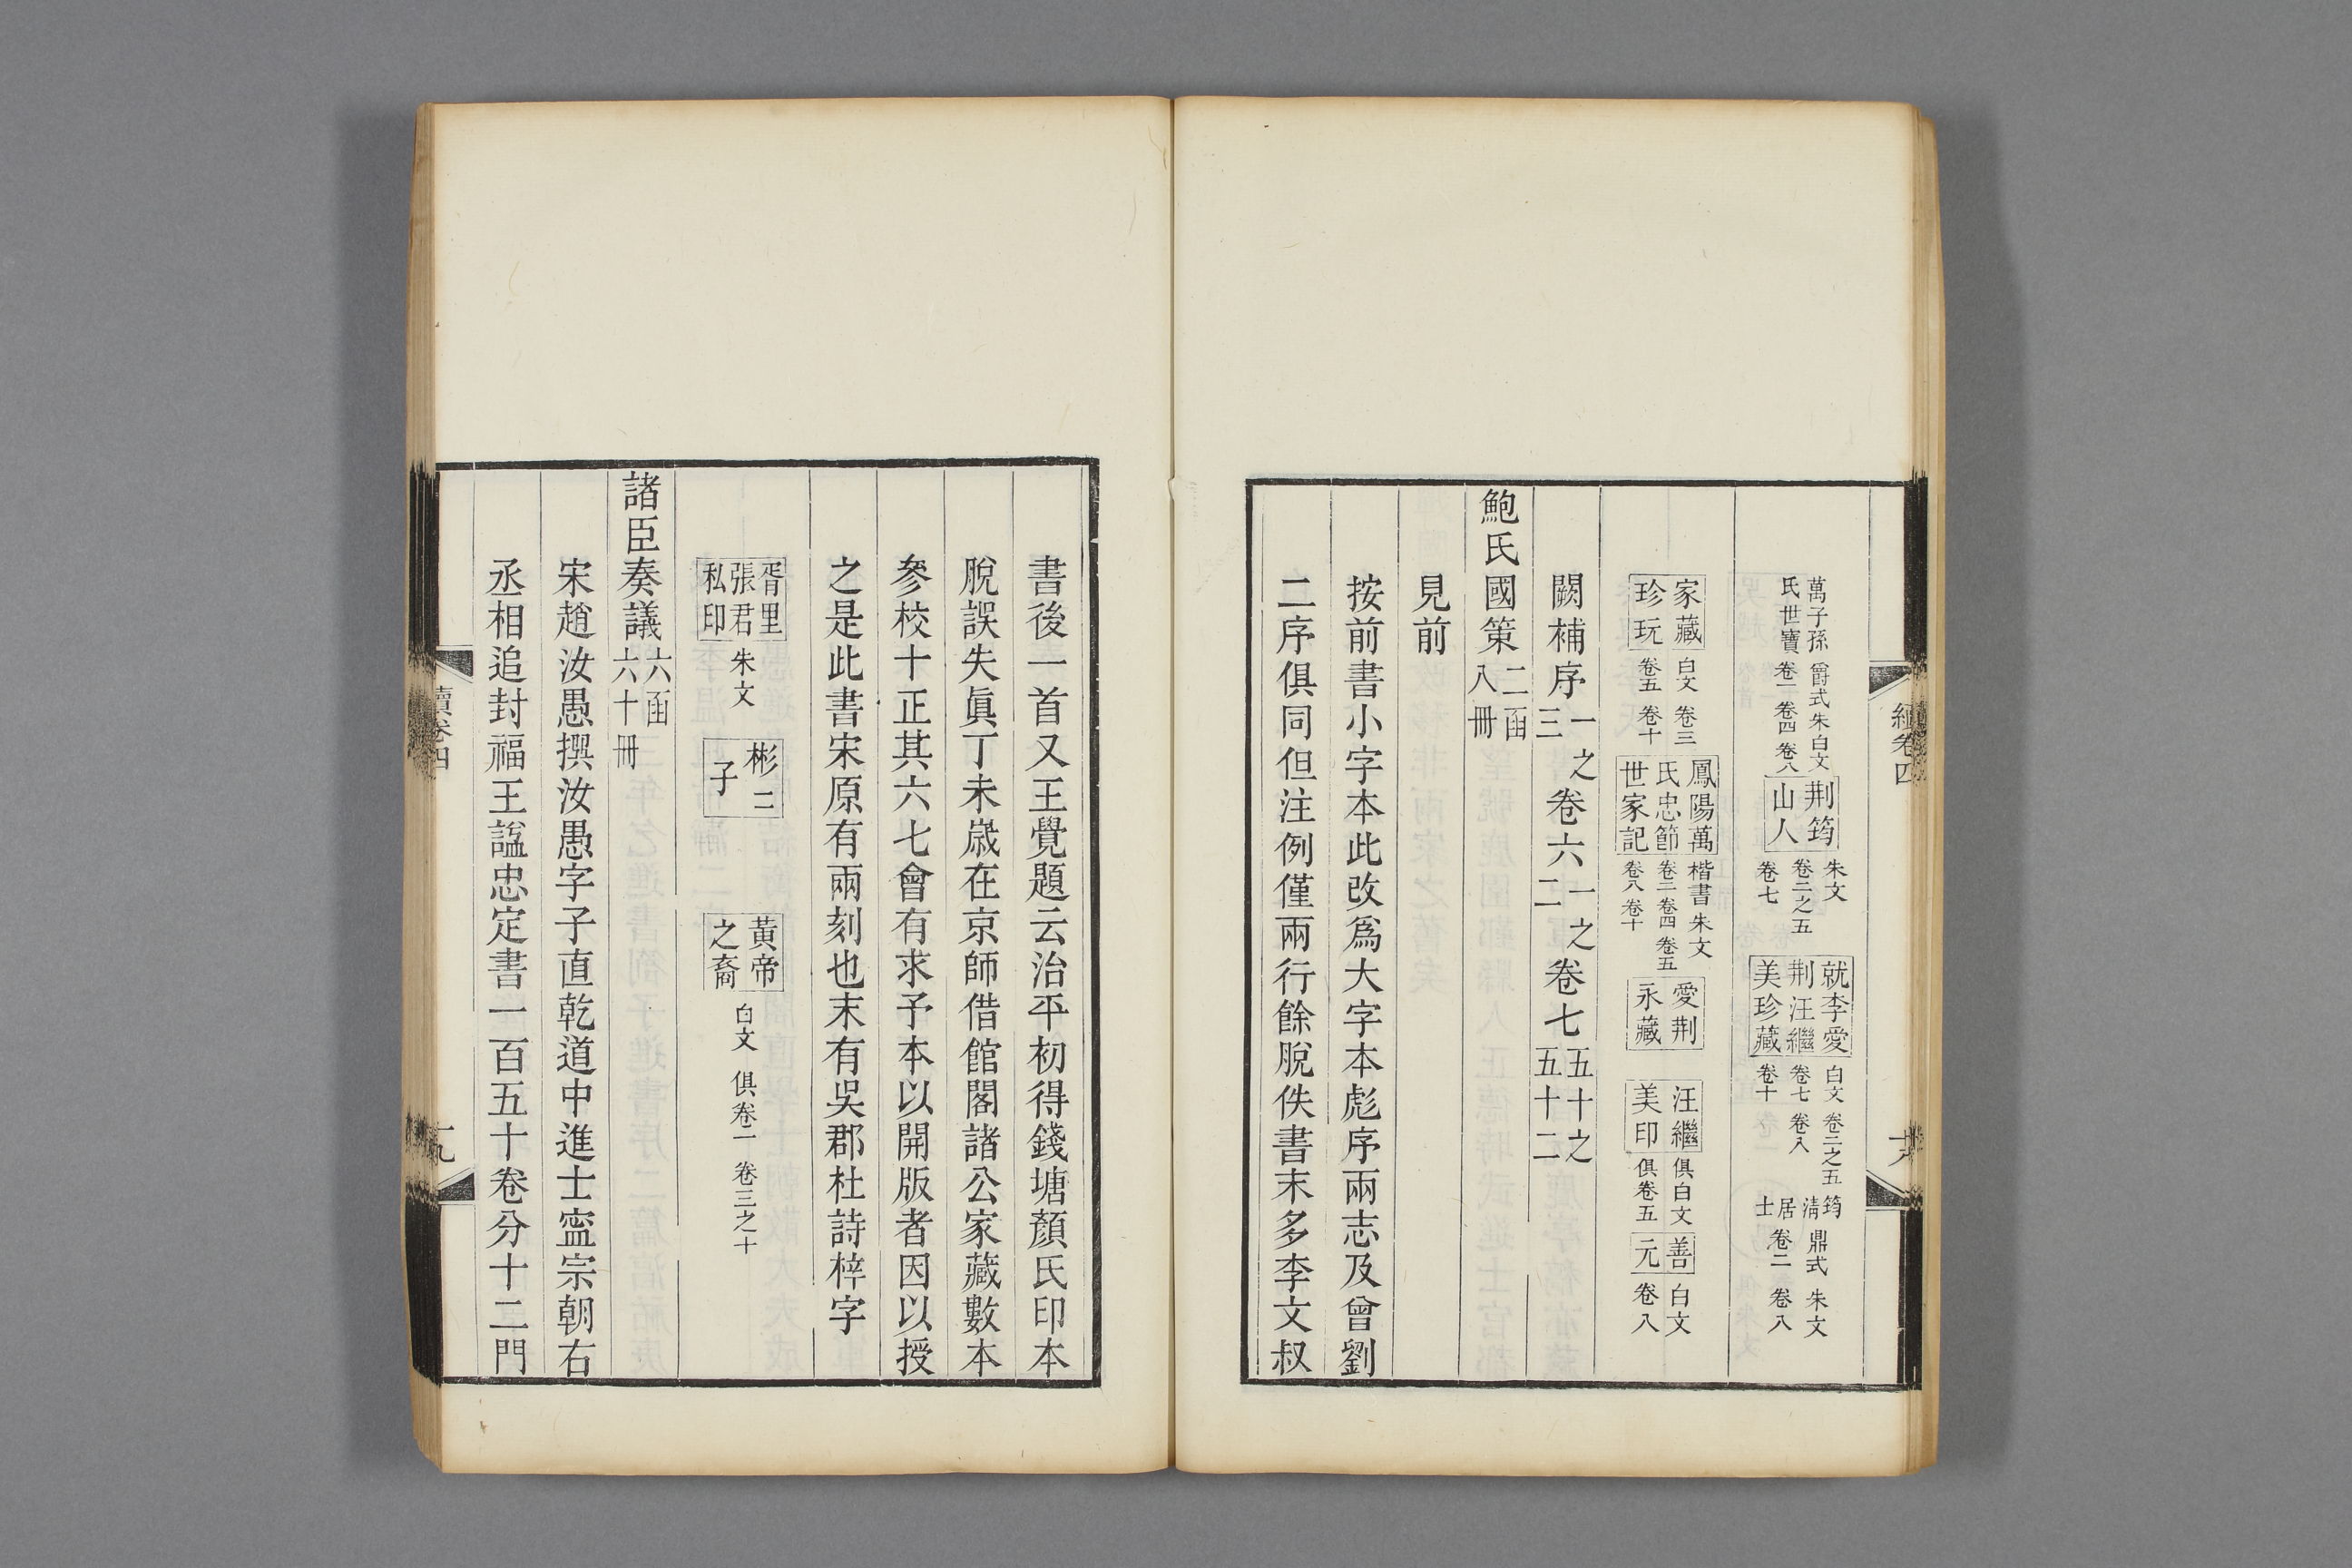 續卷四
萬子孫氏世寶 爵式朱白文 卷一卷四卷八 荆筠山人 朱文 卷二之五 卷七 就李愛荆汪繼美珍藏 白文 卷二之五 卷七 卷八 卷十 筠清居士 鼎式 朱文 卷二 卷八
家藏珍玩 白文 卷三 卷五 卷十 鳳陽萬氏忠節世家記 楷書朱文 卷二卷四卷五 卷八卷十 愛荆永藏 汪繼美印 俱白文 俱卷五 善元 白文 卷八
闕補序一之三卷六一之二卷七五十之五十二
鮑氏國策 二函八冊
見前
按前書小字本此改爲大字本彪序兩志及曾劉
二序俱同但注例僅兩行餘脫佚書末多李文叔
書後一首又王覺題云治平初得錢塘顏氏印本
脫誤失眞丁未歲在京師借館閣諸公家藏數本
參校十正其六七會有求予本以開版者因以授
之是此書宋原有兩刻也末有吳郡杜詩梓字
胥里張君私印 朱文 彬二子 黃帝之裔 白文 俱卷二 卷三之十
諸臣奏議 六函六十冊
宋趙汝愚撰汝愚字子直乾道中進士寍宗朝右
丞相追封福王諡忠定書一百五十卷分十二門
續卷四